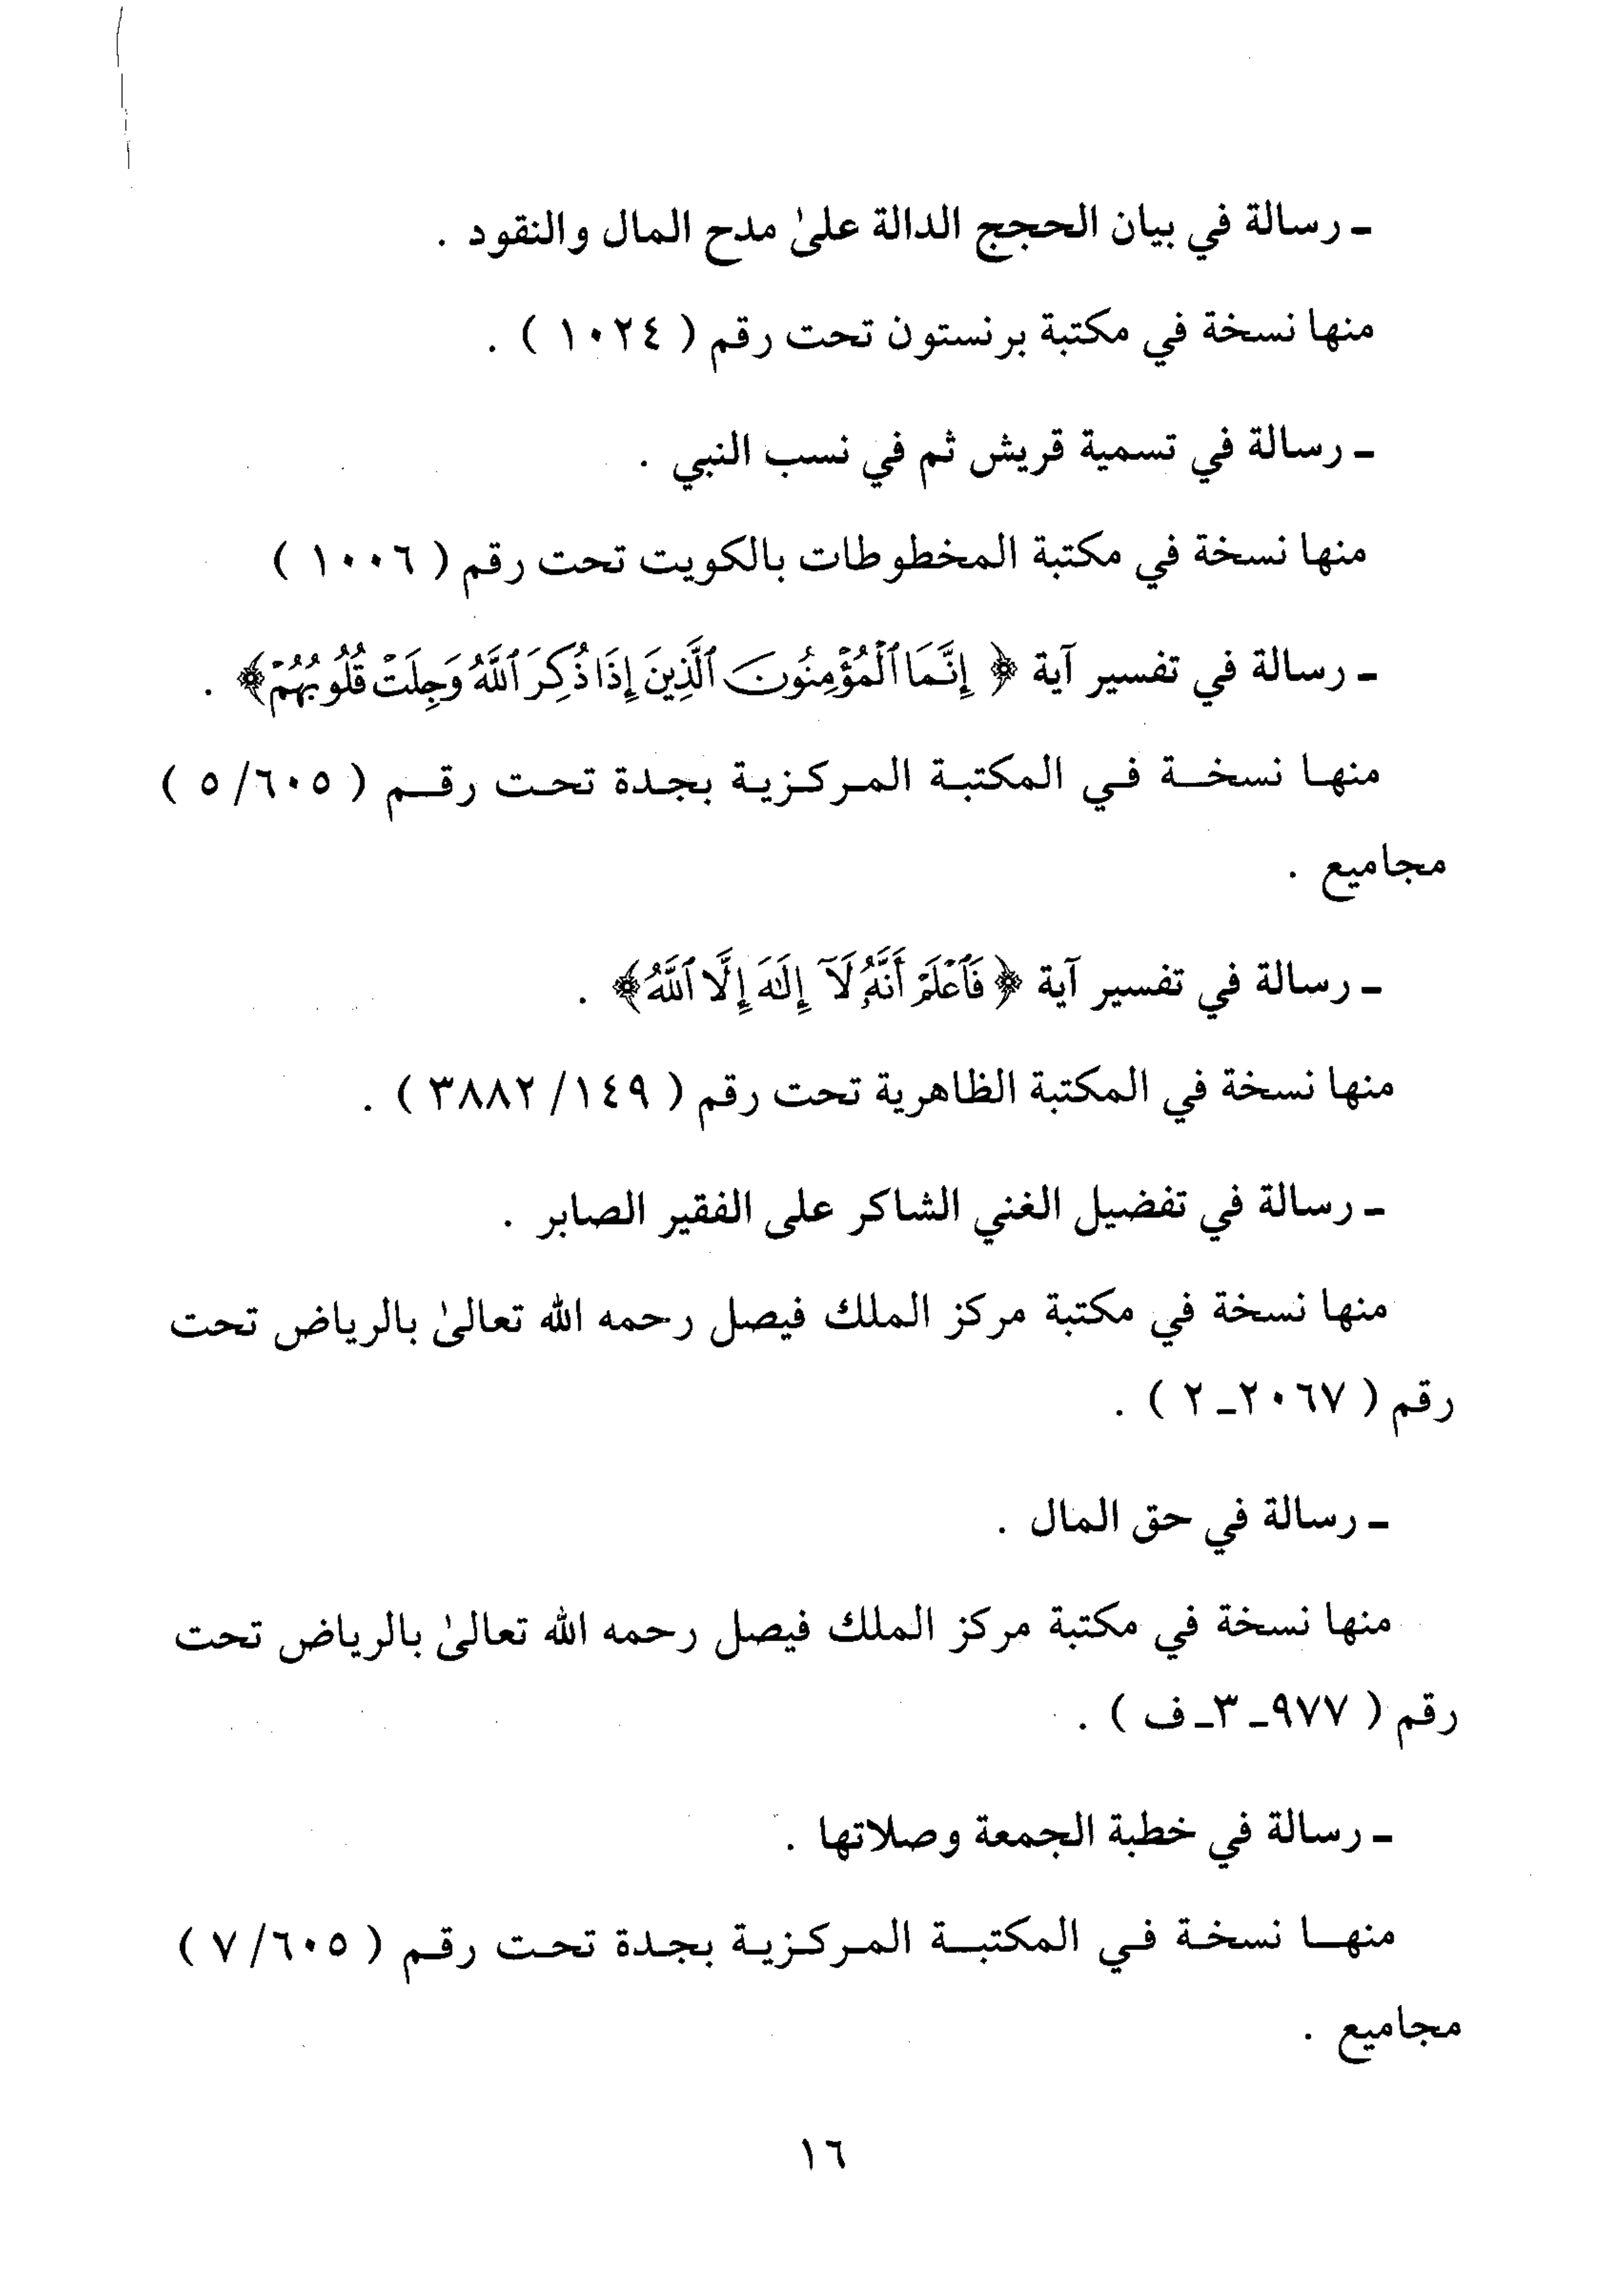 ـ رسالة في بيان الحجج الدالة علىٰ مدح المال والنقود .
منها نسخة في مكتبة برنستون تحت رقم ( ١٠٢٤ ) .
ـ رسالة في تسمية قريش ثم في نسب النبي .
منها نسخة في مكتبة المخطوطات بالكويت تحت رقم ( ١٠٠٦ )
ـ رسالة في تفسير آية ﴿ إِنَّمَا ٱلْمُؤْمِنُونَ ٱلَّذِينَ إِذَا ذُكِرَ ٱللَّهُ وَجِلَتْ قُلُوبُهُمْ﴾ .
منها نسخة في المكتبة المركزية بجدة تحت رقم ( ٥/٦٠٥ )
مجاميع .
ـ رسالة في تفسير آية ﴿ فَٱعْلَمْ أَنَّهُۥ لَآ إِلَٰهَ إِلَّا ٱللَّهُ﴾ .
منها نسخة في المكتبة الظاهرية تحت رقم ( ٣٨٨٢/١٤٩ ) .
ـ رسالة في تفضيل الغني الشاكر على الفقير الصابر .
منها نسخة في مكتبة مركز الملك فيصل رحمه الله تعالىٰ بالرياض تحت
رقم ( ٢٠٦٧ـ٢ ) .
ـ رسالة في حق المال .
منها نسخة في مكتبة مركز الملك فيصل رحمه الله تعالىٰ بالرياض تحت
رقم ( ٩٧٧ـ٣ـ ف ) .
ـ رسالة في خطبة الجمعة وصلاتها .
منها نسخة في المكتبة المركزية بجدة تحت رقم ( ٧/٦٠٥ )
مجاميع .
١٦